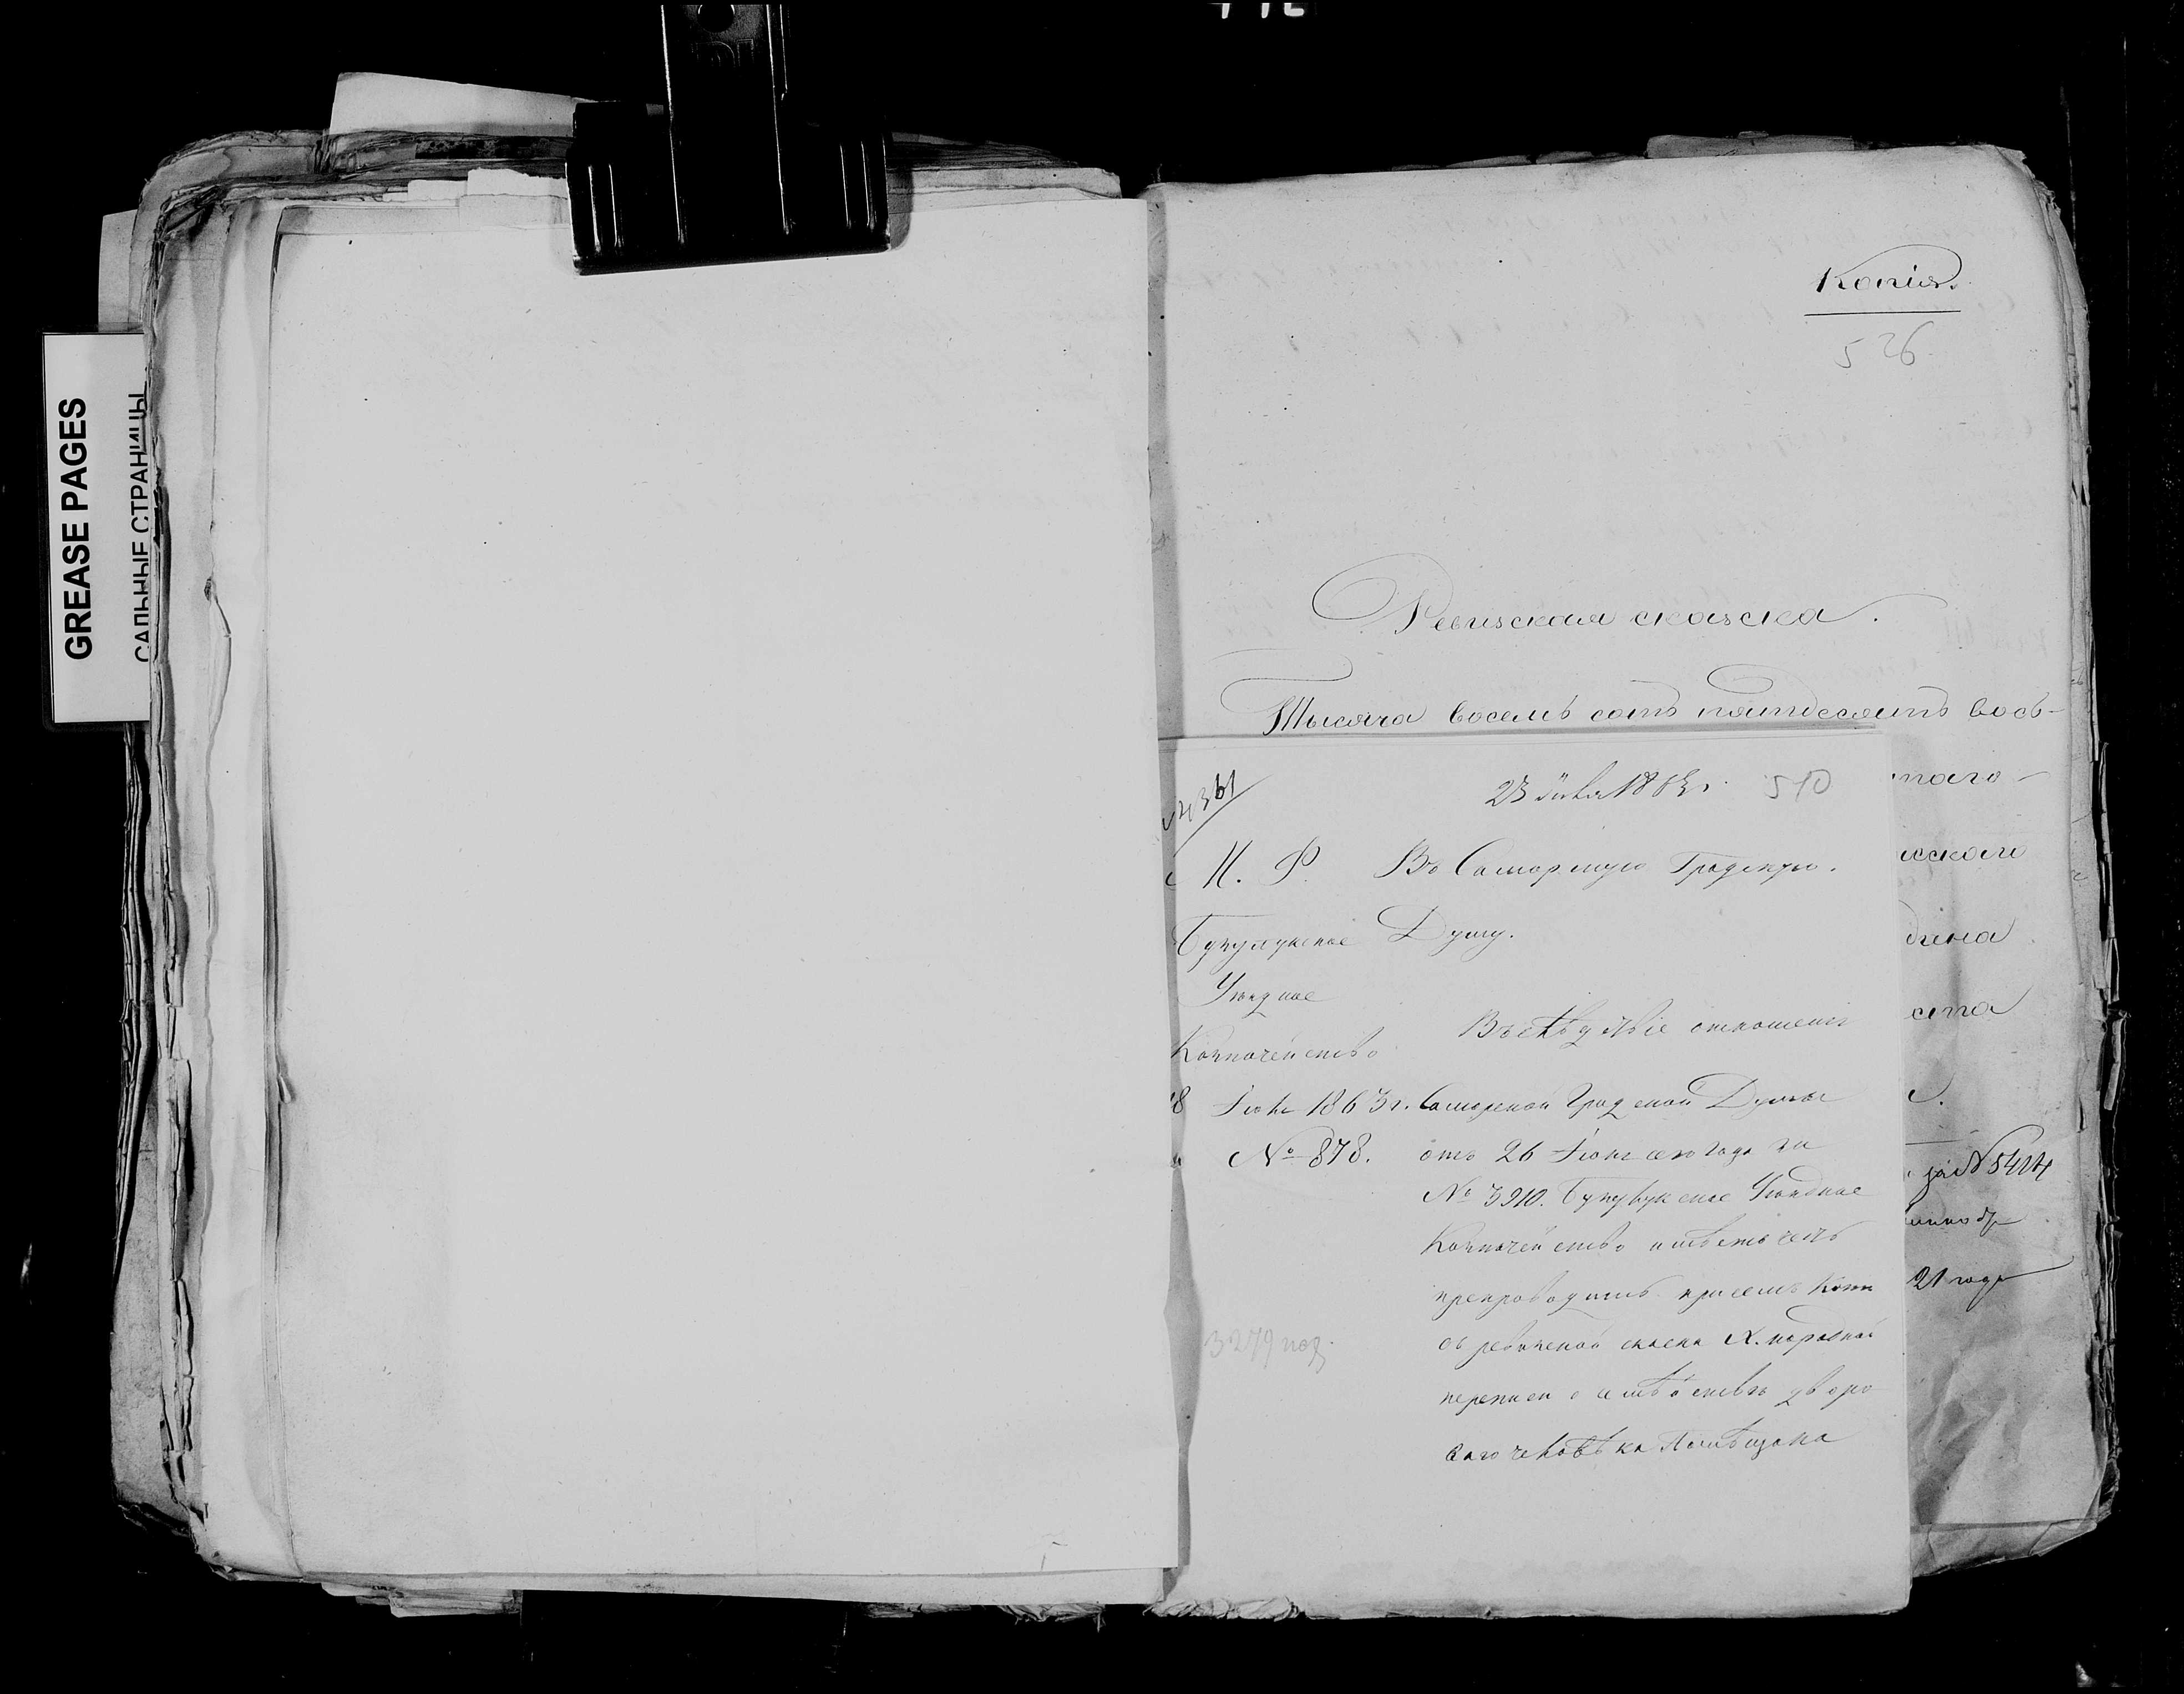 GREASE PAGES
САЛЬНЫЕ СТРАНИЦЫ
Копія.
526
Ревизская сказка.
Тысяча восемь сотъ пятьдесятъ вось-
таго
дина
ста
за № 5424
21 года
4361
23 Іюля 1863 г. 510
М. Ф.
Бугурусланское
Уѣздное
Казначейство
8 Іюля 1863 г.
№ 878.
3279 пол.
Въ Самарскую Градскую
Думу.
Вслѣдствіе отношенія
Самарской Градской Думы
отъ 26 Іюня сего года за
№ 3910. Уѣздное
Казначейство имѣетъ честь
препроводить при семъ копію
съ ревизской сказки X. народной
переписи о семействѣ дворо
ваго человѣка Помѣщика